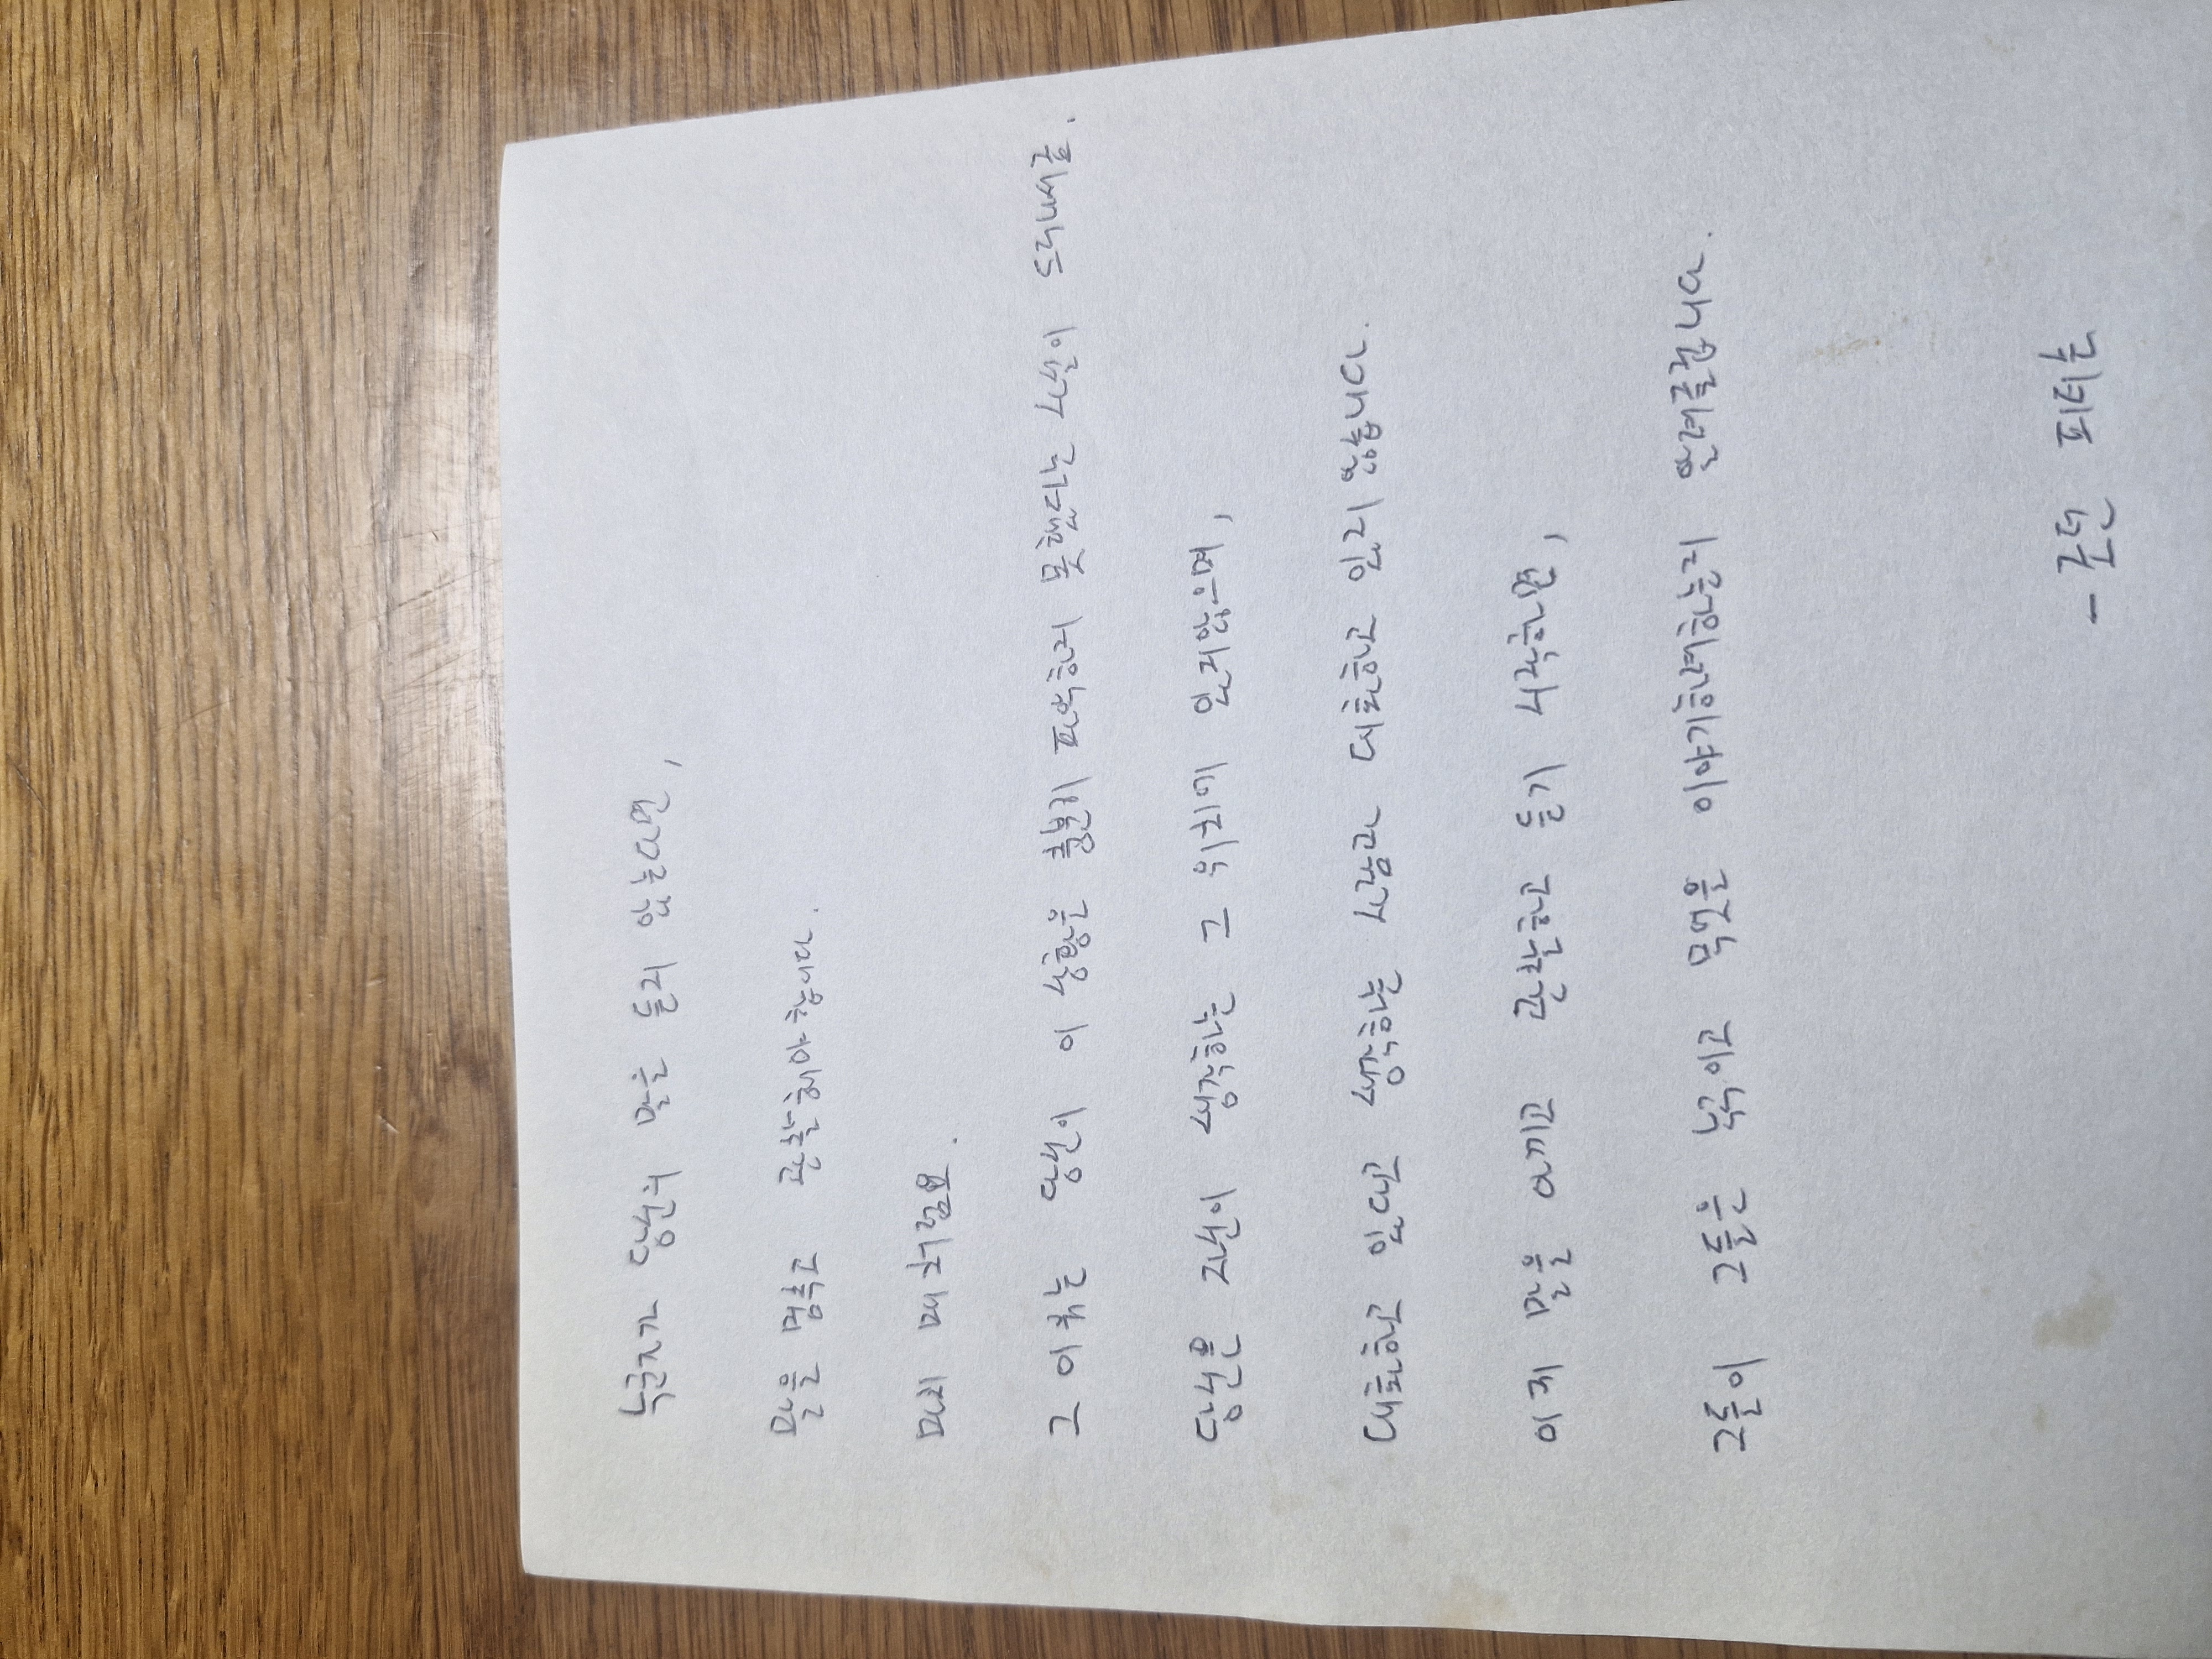 누군가 당신의 말을 듣지 않는다면,
말을 멈추고 관찰해야합니다.
마치 매처럼요.
그 이유는 당신이 이 상황을 충분히 파악하지 못했다는 사실이 드러네줌.
당신은 자신이 생각하는 그 위치에 있지않으며,
대화하고 있다고 생각하는 사람과 대화하고 있지 않습니다.
이제 말을 아끼고 관찰하고 듣기 시작하면,
그들이 그들은 누구이고 무엇을 이야기하려하는지 알려줄겁니다.
- 조던 피터슨